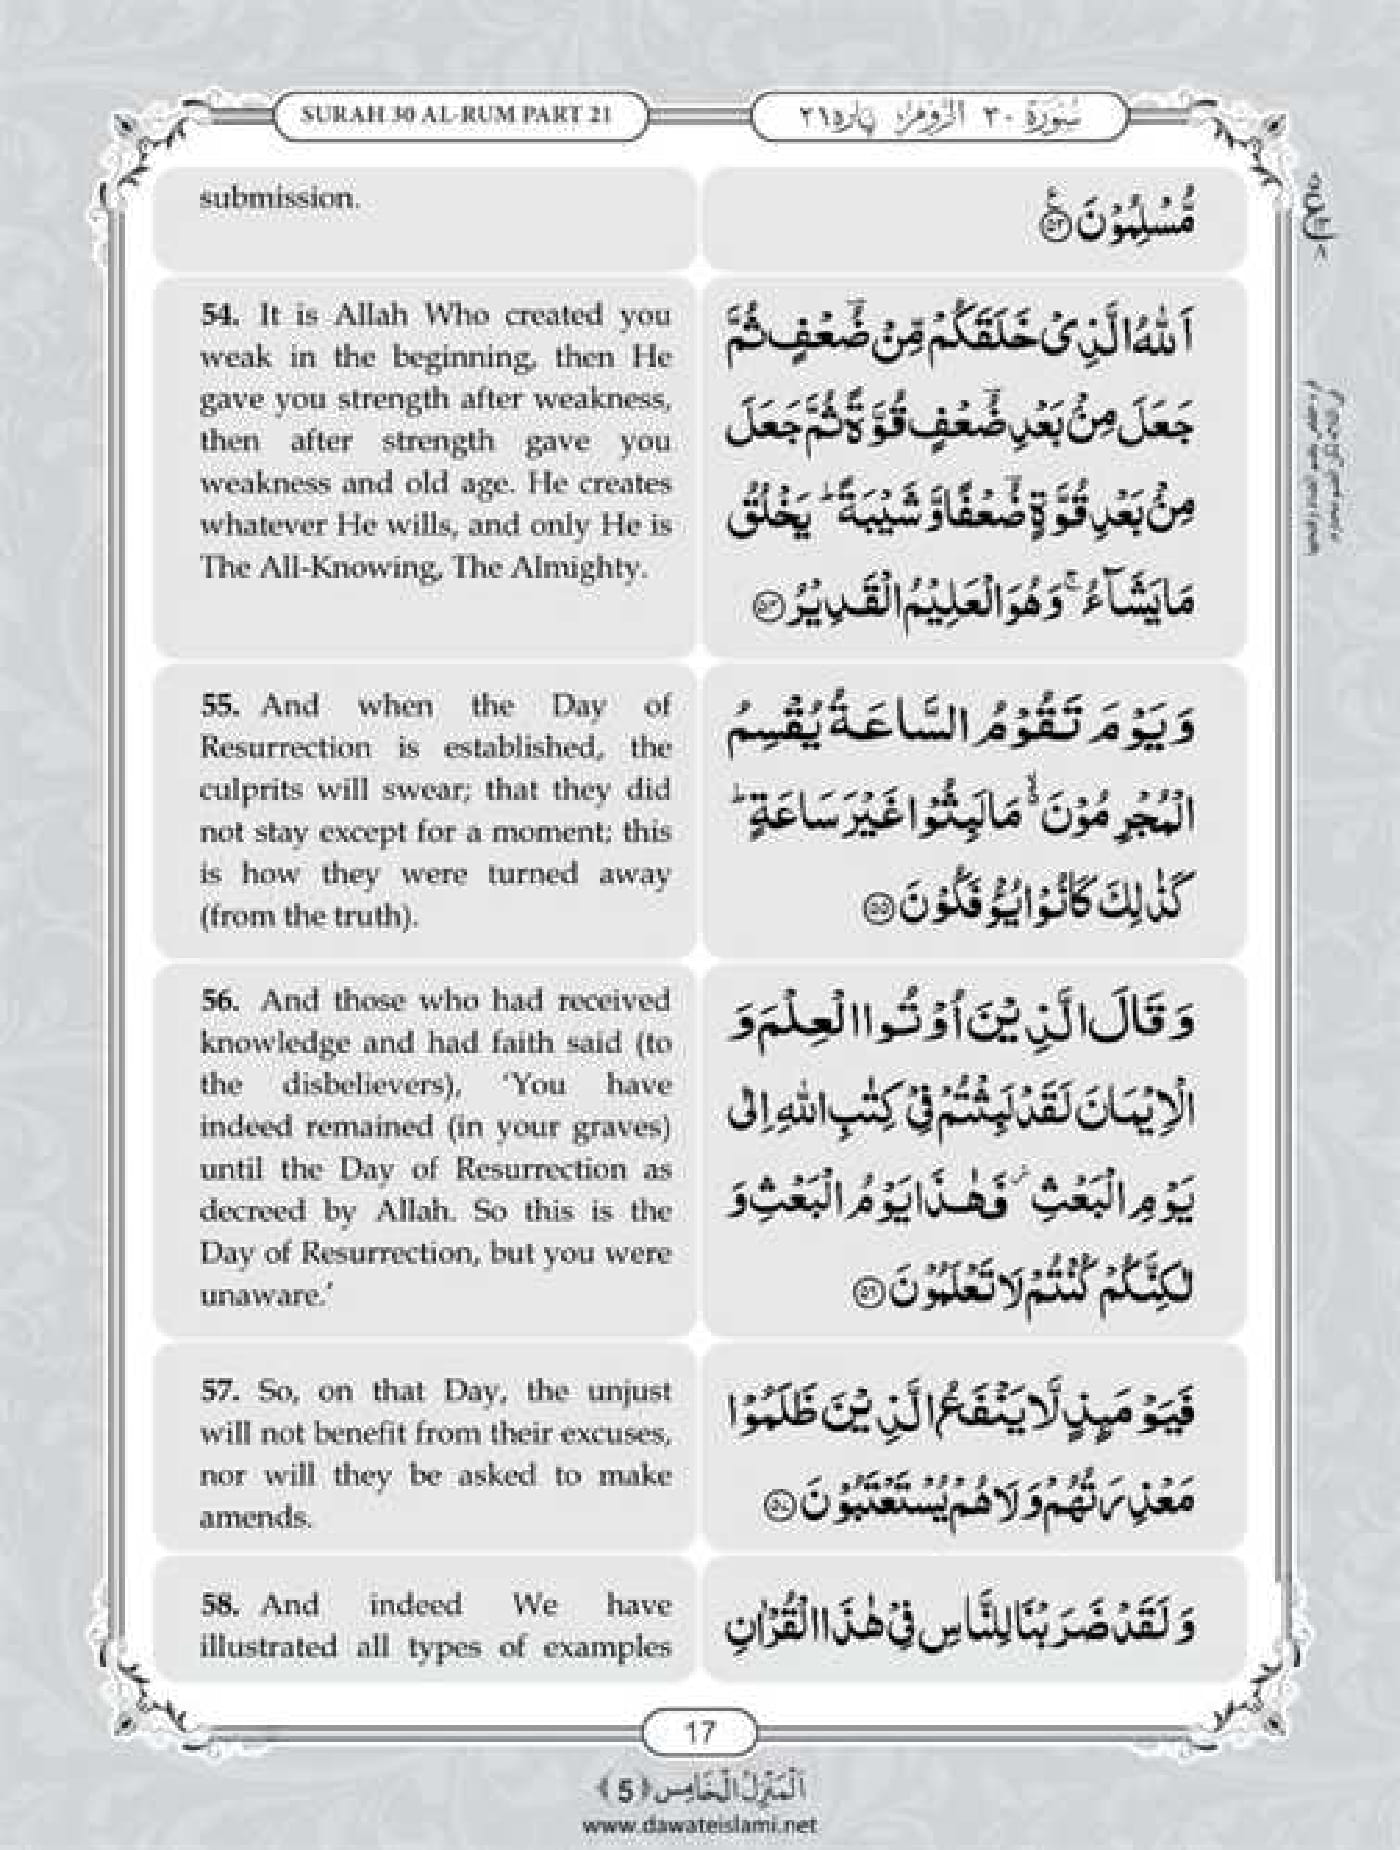 SURAH 30 AL-RUM PART 21
سُوۡرَۃ ۳۰ الرُّوۡم، پارہ ۲۱
submission.
مُّسْلِمُوۡنَ ﴿۵۳﴾
54. It is Allah Who created you
weak in the beginning, then He
gave you strength after weakness,
then after strength gave you
weakness and old age. He creates
whatever He wills, and only He is
The All-Knowing, The Almighty.
اَللّٰہُ الَّذِیۡ خَلَقَکُمۡ مِّنۡ ضُؔعْفٍ ثُمَّ
جَعَلَ مِنۡۢ بَعْدِ ضُؔعْفٍ قُوَّۃً ثُمَّ جَعَلَ
مِنۡۢ بَعْدِ قُوَّۃٍ ضُؔعْفًا وَّ شَیۡبَۃً ؕ یَخْلُقُ
مَا یَشَآءُ ۚ وَہُوَ الْعَلِیۡمُ الْقَدِیۡرُ ﴿۵۴﴾
55. And when the Day of
Resurrection is established, the
culprits will swear; that they did
not stay except for a moment; this
is how they were turned away
(from the truth).
وَ یَوْمَ تَقُوۡمُ السَّاعَۃُ یُقْسِمُ
الْمُجْرِمُوۡنَ ۬ۙ مَا لَبِثُوۡا غَیۡرَ سَاعَۃٍ ؕ
کَذٰلِکَ کَانُوۡا یُؤْفَکُوۡنَ ﴿۵۵﴾
56. And those who had received
knowledge and had faith said (to
the disbelievers), ‘You have
indeed remained (in your graves)
until the Day of Resurrection as
decreed by Allah. So this is the
Day of Resurrection, but you were
unaware.’
وَ قَالَ الَّذِیۡنَ اُوۡتُوا الْعِلْمَ وَ
الْاِیۡمَانَ لَقَدْ لَبِثْتُمْ فِیۡ کِتٰبِ اللہِ اِلٰی
یَوْمِ الْبَعْثِ ۫ فَہٰذَا یَوْمُ الْبَعْثِ وَ
لٰکِنَّکُمْ کُنۡتُمْ لَا تَعْلَمُوۡنَ ﴿۵۶﴾
57. So, on that Day, the unjust
will not benefit from their excuses,
nor will they be asked to make
amends.
فَیَوْمَئِذٍ لَّا یَنۡفَعُ الَّذِیۡنَ ظَلَمُوۡا
مَعْذِرَتُہُمْ وَلَا ہُمْ یُسْتَعْتَبُوۡنَ ﴿۵۷﴾
58. And indeed We have
illustrated all types of examples
وَ لَقَدْ ضَرَبْنَا لِلنَّاسِ فِیۡ ہٰذَا الْقُرْاٰنِ
17
اَلْمَنْزِلُ الْخَامِس ﴿5﴾
www.dawateislami.net